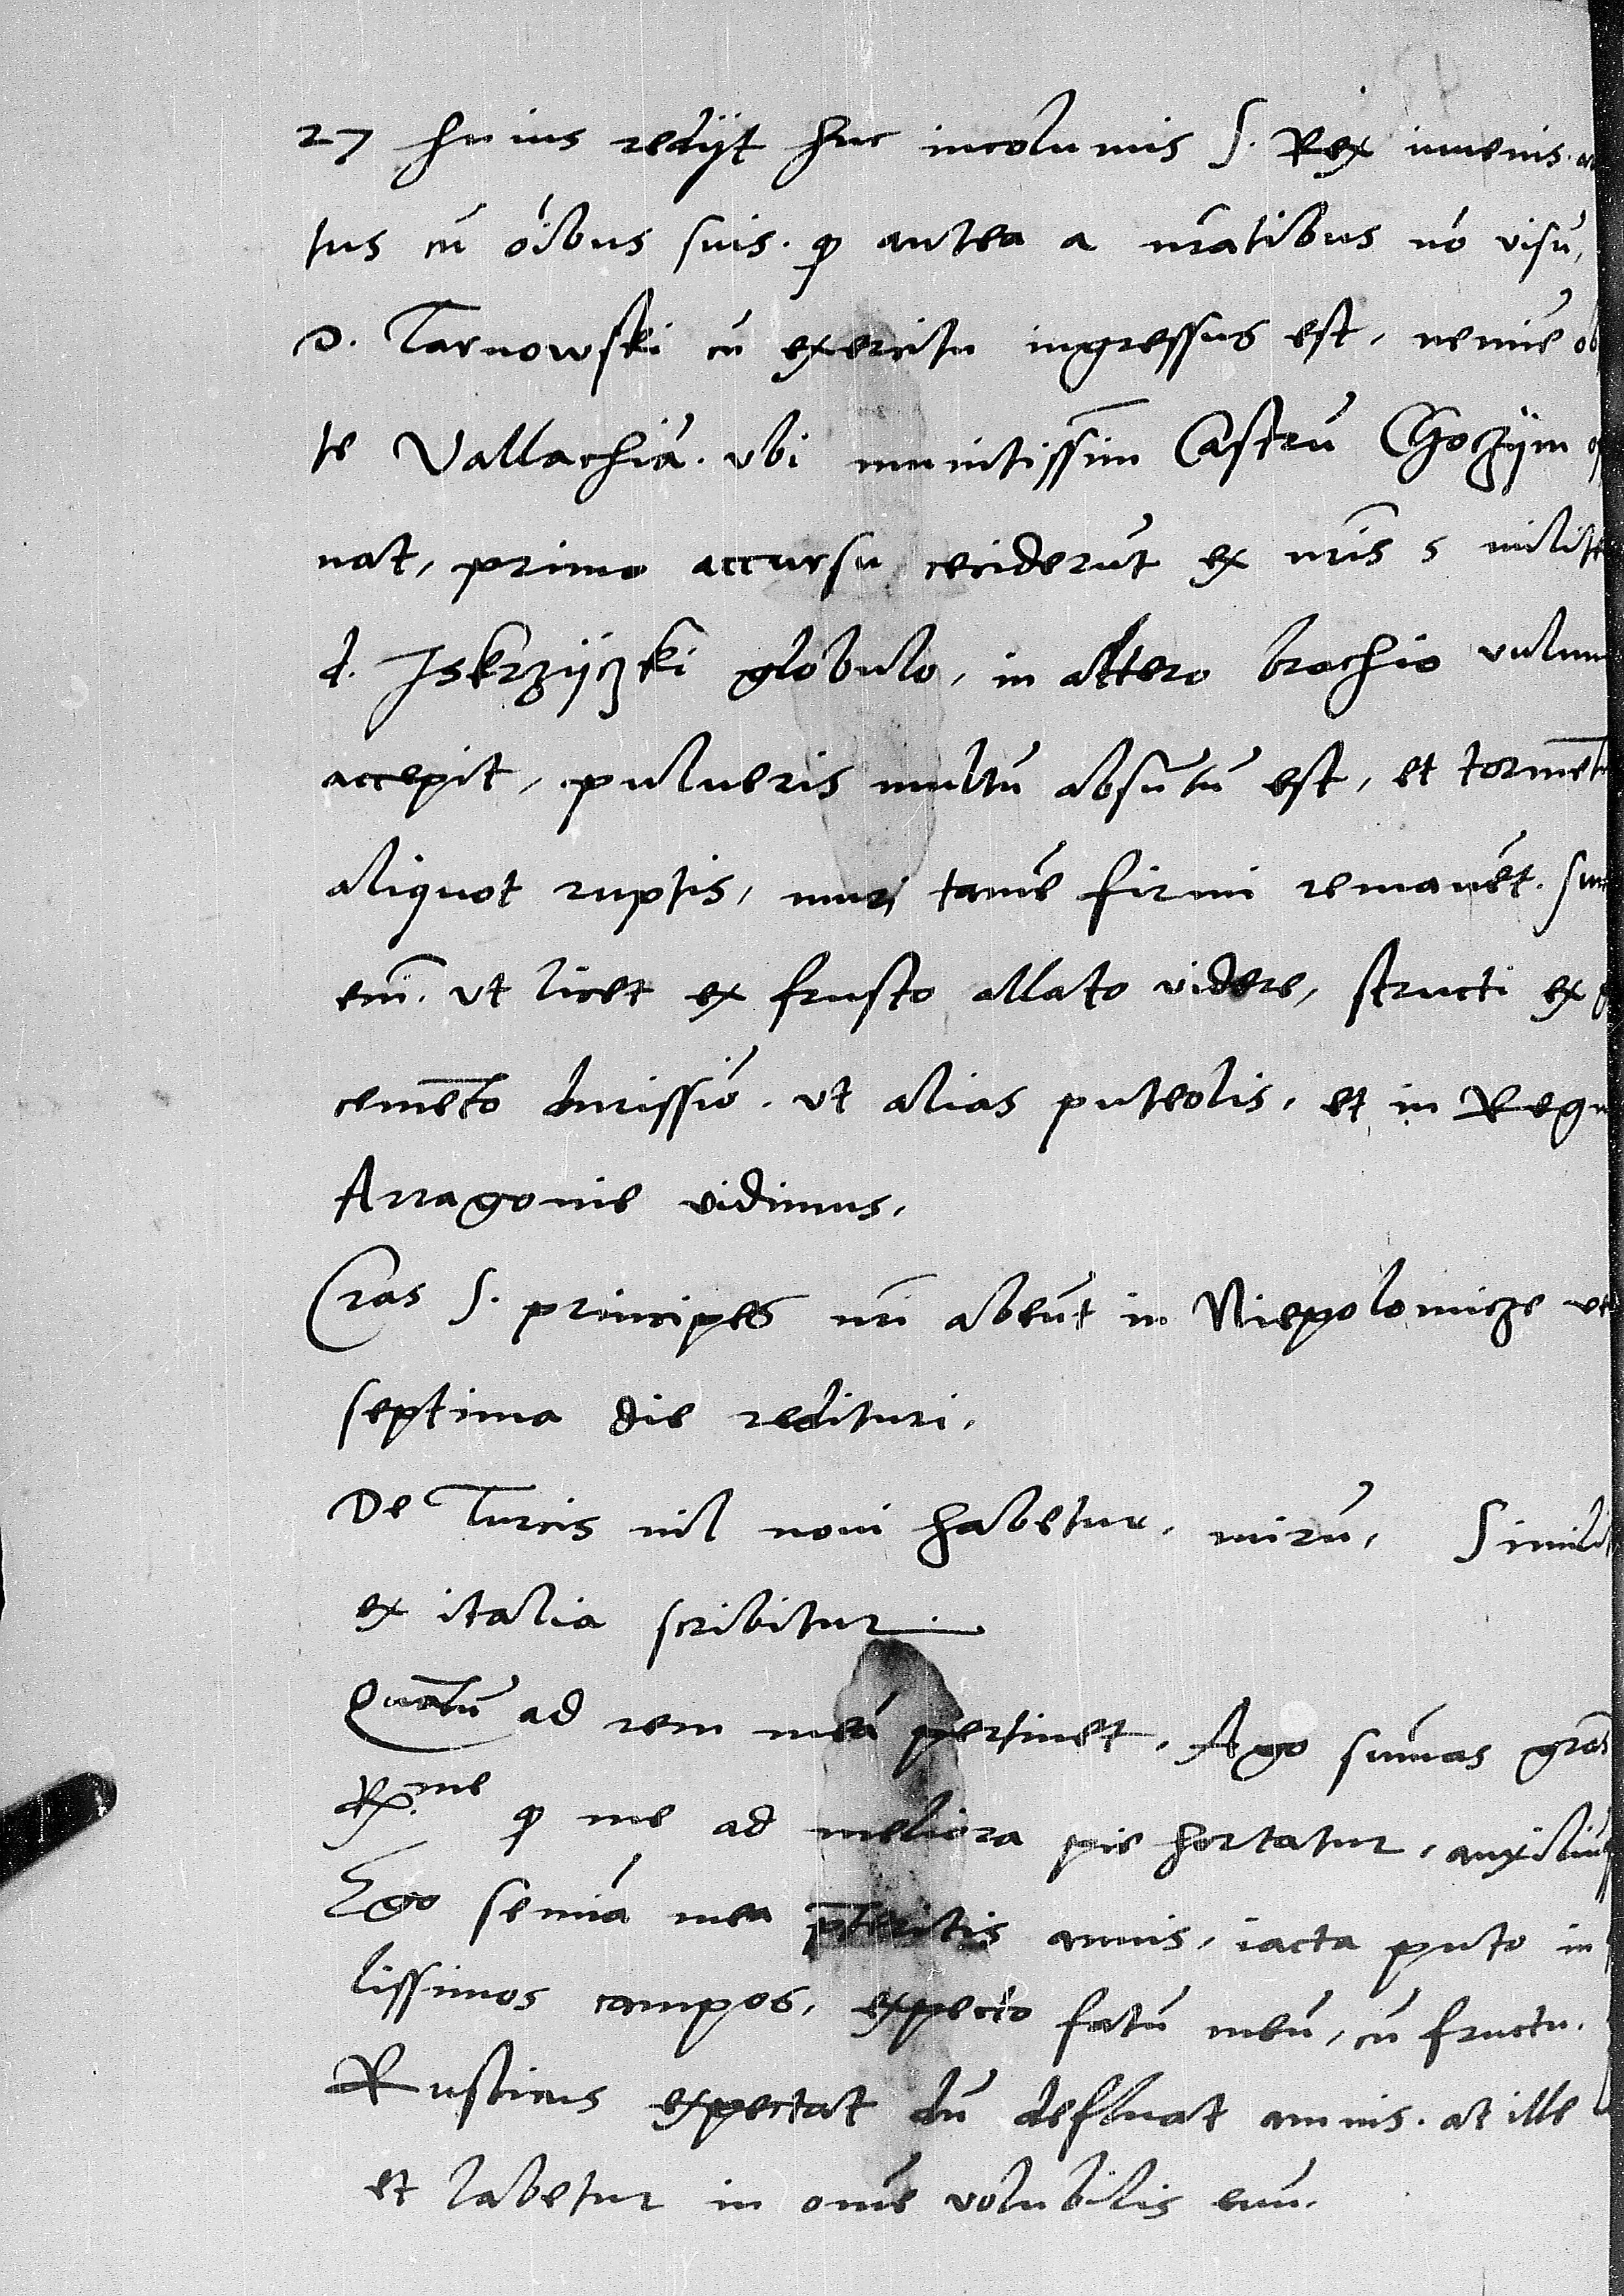 27 huius redijt huc incolumis S. Rex iuuenis.
tus cū oībus suis. ꝙ antea a nr̄atibus nō visū,
D. Tarnowski cū exercitu ingressus est, nemīe
te Vallachiā. vbi munitissim̄ Castrū Choczijm
nat, primo accursu ceciderūt ex nr̄is 5 milit
d. Jskrzijczki globulo, in altero brachio vuln
accepit, pulueris multū absūtū est, et tormēt
aliquot ruptis, muri tamē firmi remanēt. sun
eni̅. vt licet ex frusto allato videre, structi ex
cemēto durissiō. vt alias puteolis, et in Regn
Arragonie vidimus,
Cras S. principes nr̄i abeūt in Niepolomicze
septima die redituri.
De Turcis nil noui habetur, mirū, Simili
ex italia scribitur
Quātū ad rem meā pertinet, Ago sūmas gr̄as
R.me ꝙ me ad meliora pie hortatur, auxiliū
Ego semīa mea p̄teritis annis, iacta puto in
lissimos campos, expecto fatū meū, cū fructu.
Rusticus expectat dū defluat amnis. at ille
et labetur in om̄e volubilis euū.